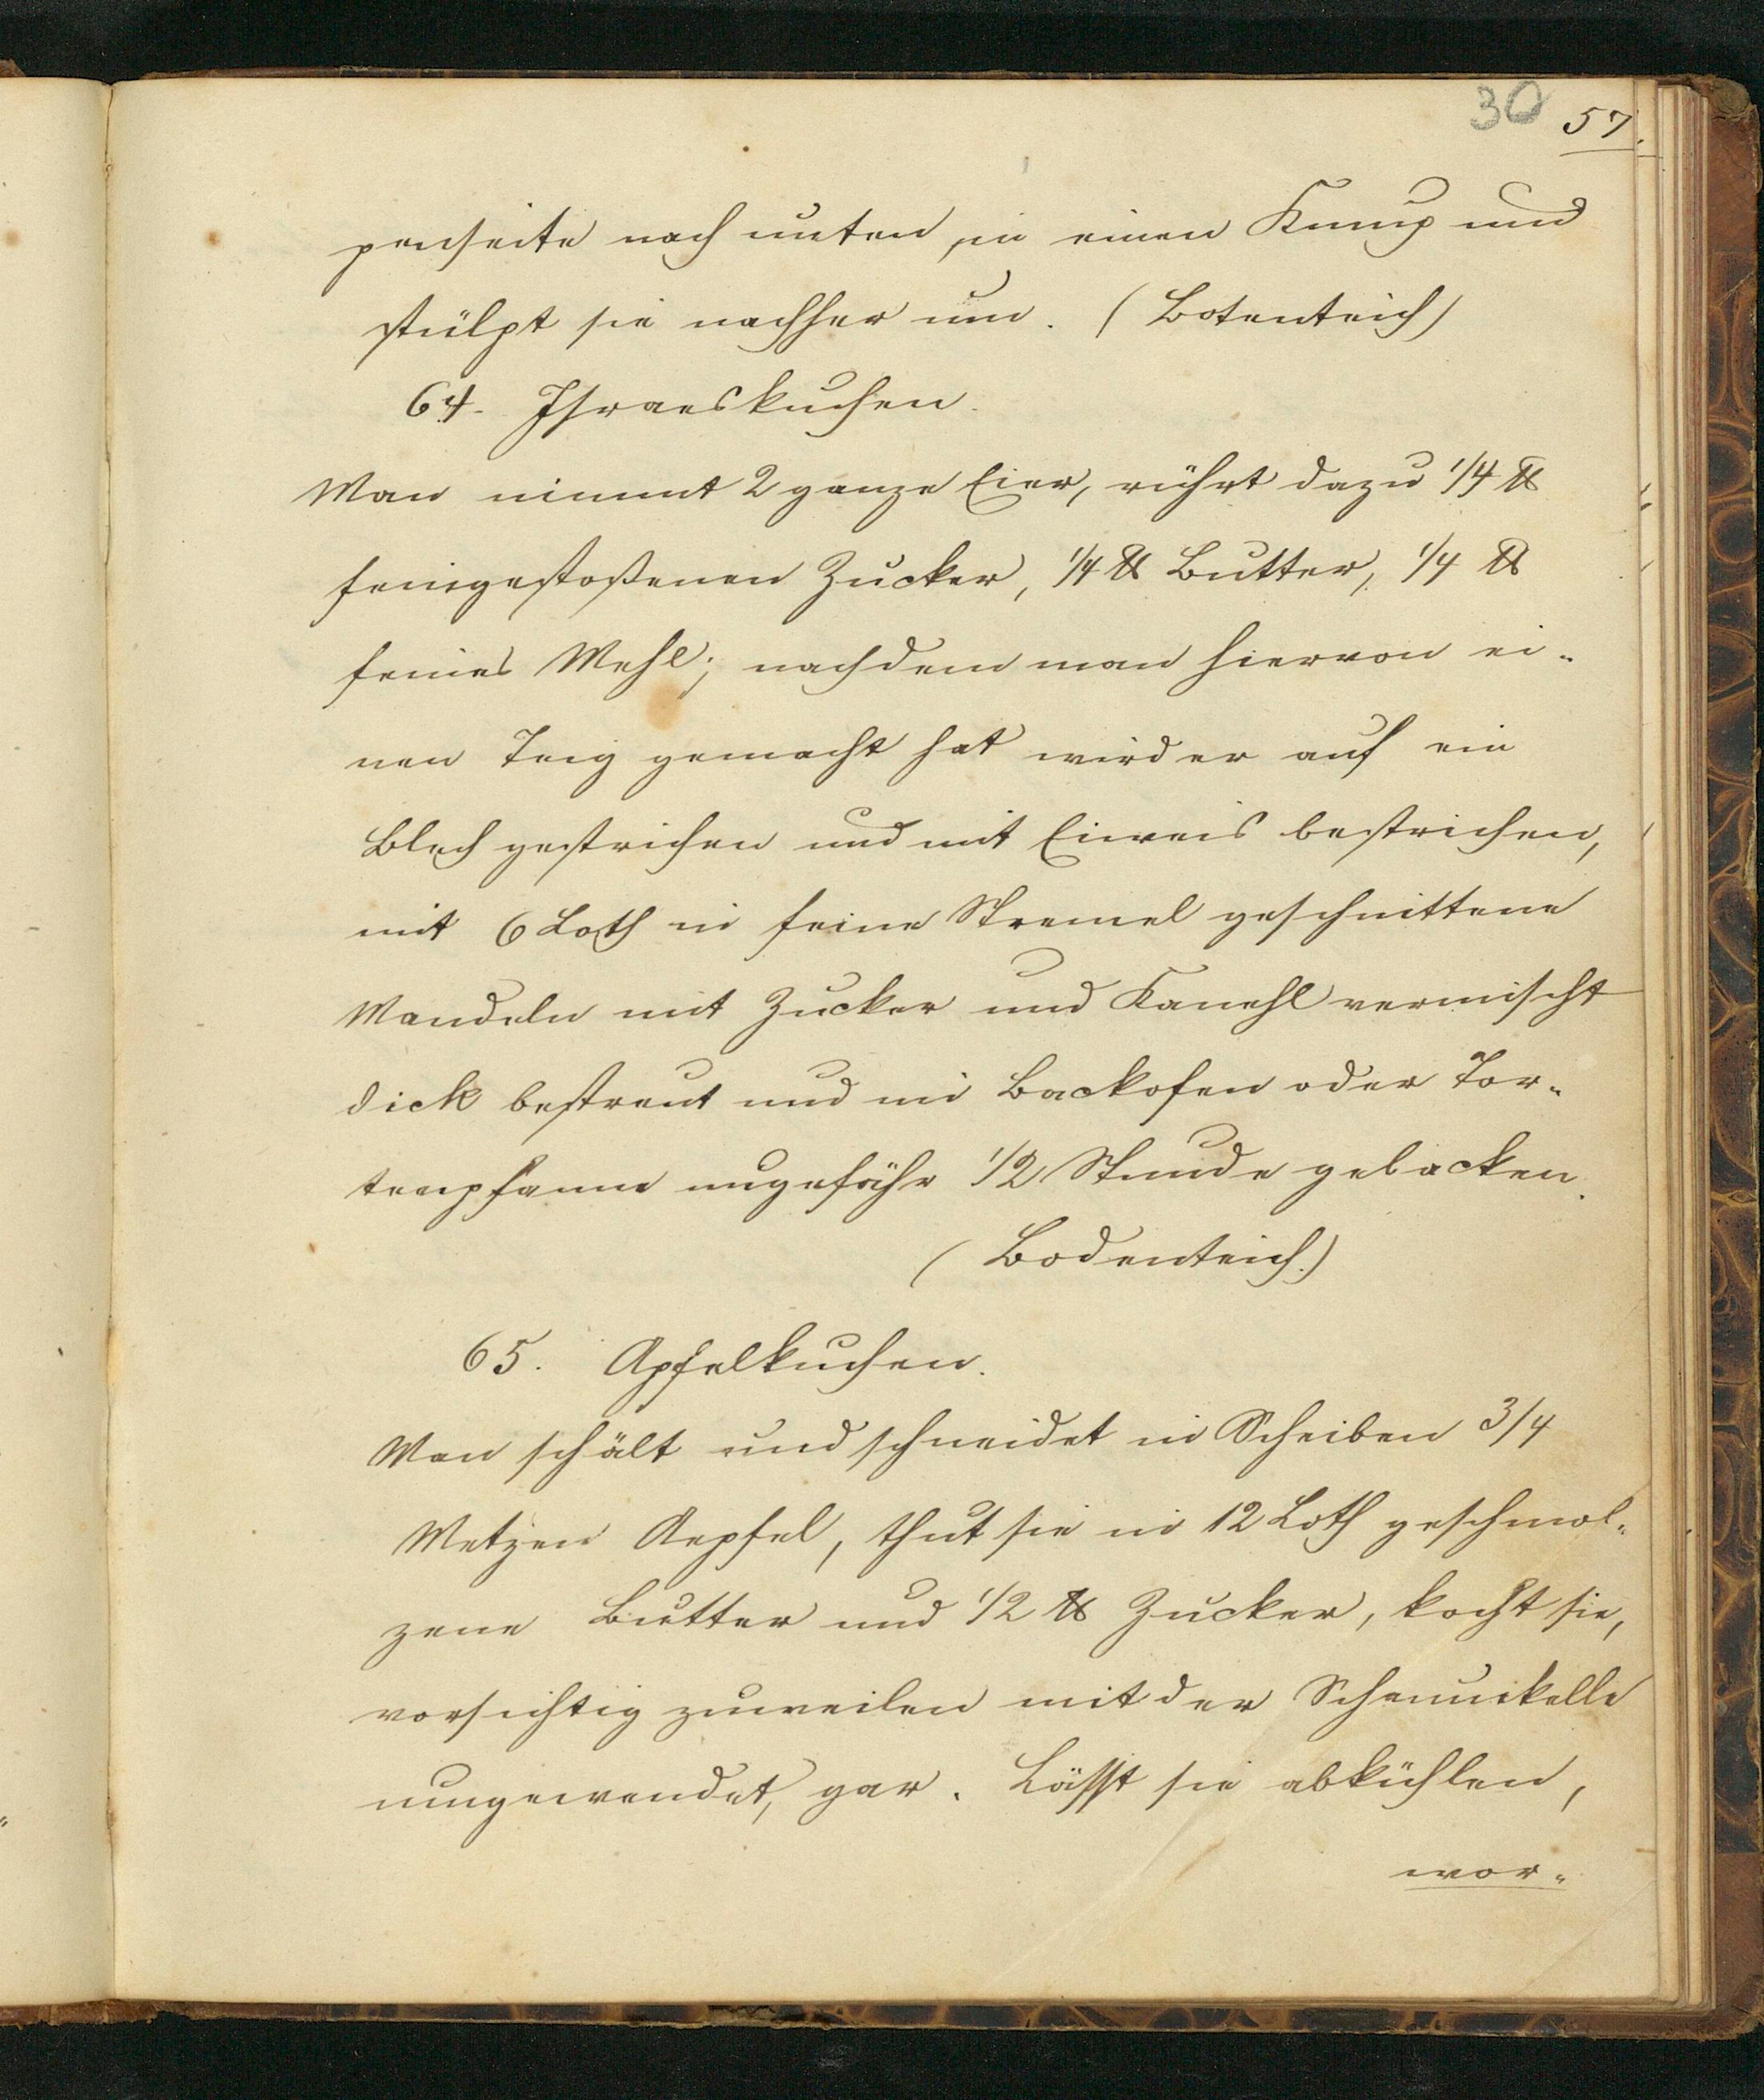 30 57.
penseite nach unten, in einen Kump und
stülpt sie nachher um. (Botenteich)
64. Ihraeskuchen.
Man nimmt 2 ganze Eier, rührt dazu 1/4 ℔
feingestoßenen Zucker, 1/4 ℔ Butter, 1/4 ℔
feines Mehl; nachdem man hiervon ei-
nen Teig gemacht hat wird er auf ein
Blech gestrichen und mit Eiweis bestrichen,
mit 6 Loth in feine Stremel geschnittene
Mandeln mit Zucker und Kanehl vermischt
dick bestreut und im Backofen oder Tor-
tenpfanne ungefähr 1/2 Stunde gebacken.
(Bodenteich.)
65. Apfelkuchen.
Man schält und schneidet in Scheiben 3/4
Metzen Aepfel, thut sie in 12 Loth geschmol-
zene Butter und 1/2 ℔ Zucker, kocht sie,
vorsichtig zuweilen mit der Schaumkelle
umgewendet, gar. Lässt sie abkühlen,
wor-